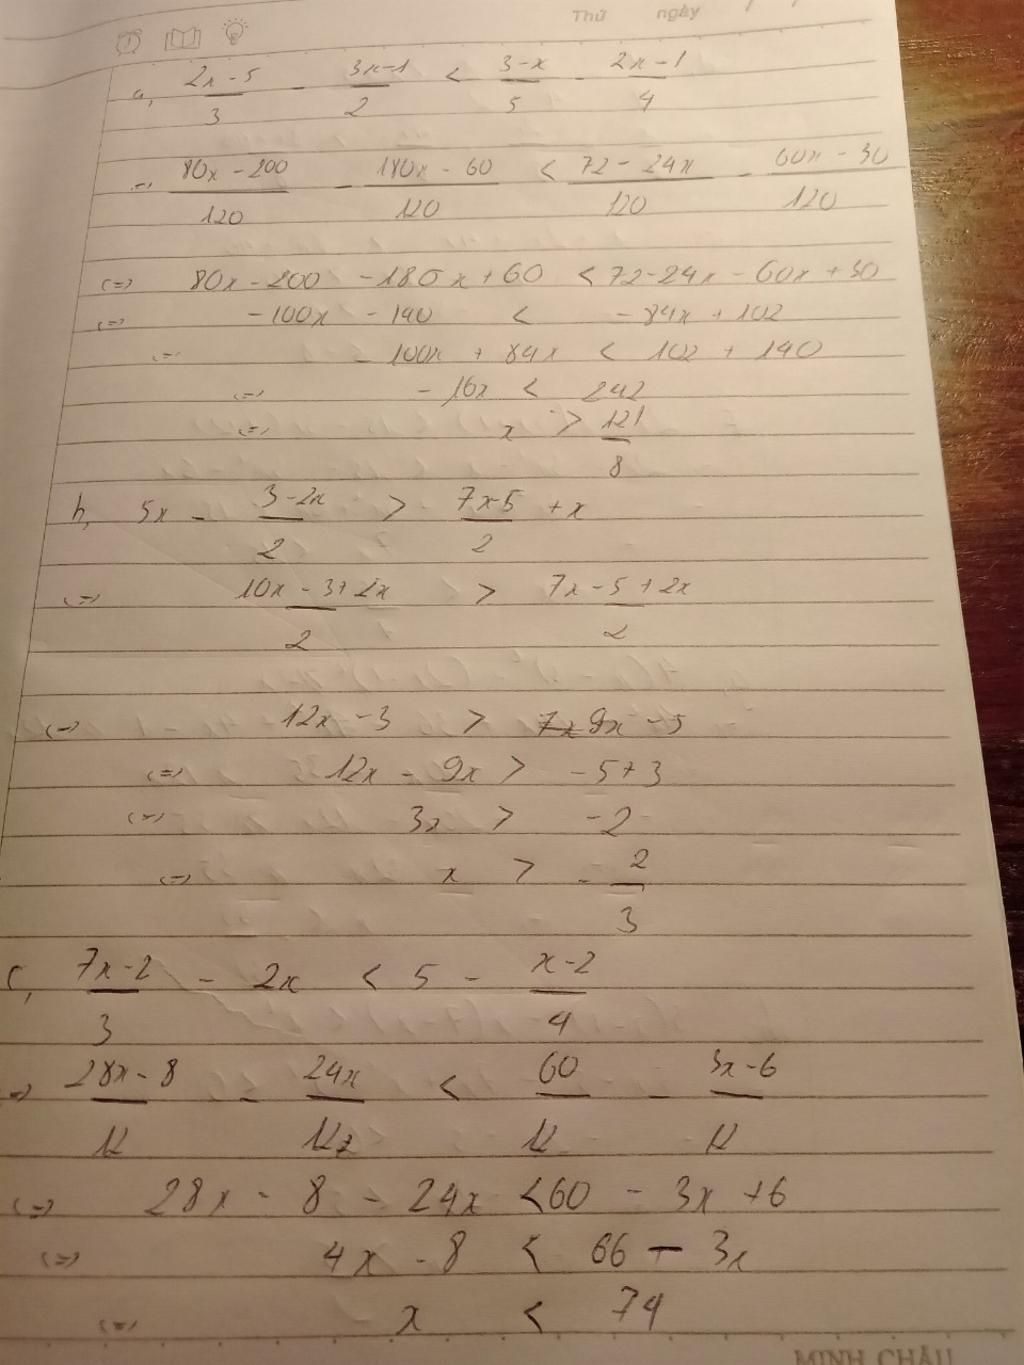 Thứ ngày
a, (2x-5)/3 - (3x-1)/2 < (3-x)/5 - (2x-1)/4
(=) (80x-200)/120 - (180x-60)/120 < (72-24x)/120 - (60x-30)/120
(=) 80x-200 -180x+60 < 72-24x-60x+30
(=) -100x -140 < -84x+102
(=) -100x + 84x < 102 + 140
(=) -16x < 242
(=) x > 121/8
b, 5x - (3-2x)/2 > (7x-5)/2 + x
(=) (10x-3+2x)/2 > (7x-5+2x)/2
(=) 12x-3 > 9x-5
(=) 12x - 9x > -5+3
(=) 3x > -2
(=) x > -2/3
c, (7x-2)/3 - 2x < 5 - (x-2)/4
(=) (28x-8)/12 - 24x/12 < 60/12 - (3x-6)/12
(=) 28x - 8 - 24x < 60 - 3x + 6
(=) 4x - 8 < 66 - 3x
(=) x < 74
MINH CHÂU